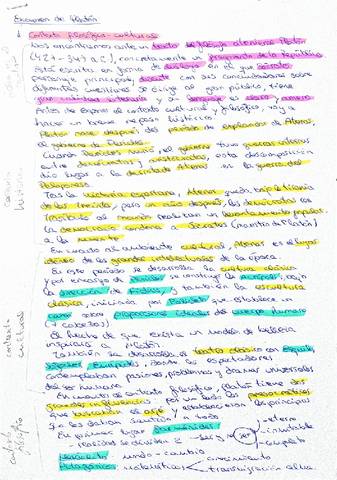 Examen de Platón
Contexto filosófico-cultural
Nos encontramos ante un texto del filósofo ateniense Platón
(427-347 a.C), concretamente un fragmento de la República
Está escrita en forma de diálogo en el que Sócrates,
personaje principal, discute con sus conciudadanos sobre
diferentes cuestiones se dirige al gran público, tiene
gran calidad literaria y su lenguaje es claro y ameno
Antes de exponer el contexto cultural y filosófico, voy a
hacer un breve repaso histórico.
Platón nace después del período de esplendor de Atenas,
el gobierno de Pericles.
Cuando Pericles murió, el gobierno tuvo guerras internas
entre demócratas y aristócratas, esta descomposición
dio lugar a la derrota de Atenas en la guerra del
Peloponeso.
Tras la victoria espartana, Atenas quedó bajo la tiranía
de los Treinta, pero un año después, los demócratas
al mando realizan un levantamiento popular.
La democracia condena a Sócrates (maestro de Platón)
a la muerte.
En cuanto al ambiente cultural, Atenas es el lugar
idóneo de los grandes intelectuales de la época.
En este período se desarrolla la cultura clásica
y por encargo de Pericles se construye la Acrópolis, bajo
la dirección de Fidias, y también la escultura
clásica, iniciada por Policleto que establece un
canon sobre proporciones ideales del cuerpo humano
(7 cabezas).
El hecho de que exista un modelo de belleza
inspirará a Platón.
También se desarrolla el teatro clásico con Esquilo,
Sófocles y Eurípides, donde los espectadores
contemplaban pasiones, problemas y dramas universales
del ser humano.
En cuanto al contexto filosófico, Platón tiene dos
grandes influencias, por un lado los presocráticos
que buscaban el arjé y establecieron los principios
En primer lugar Parménides
eterno
- realidad se divide 2 - ser y no ser
inmutable
completo
Heráclito: mundo - cambio
Pitagóricos: matemáticas
conocimiento
transmigración alma.
contexto
histórico
contexto
cultural
contexto
filosófico